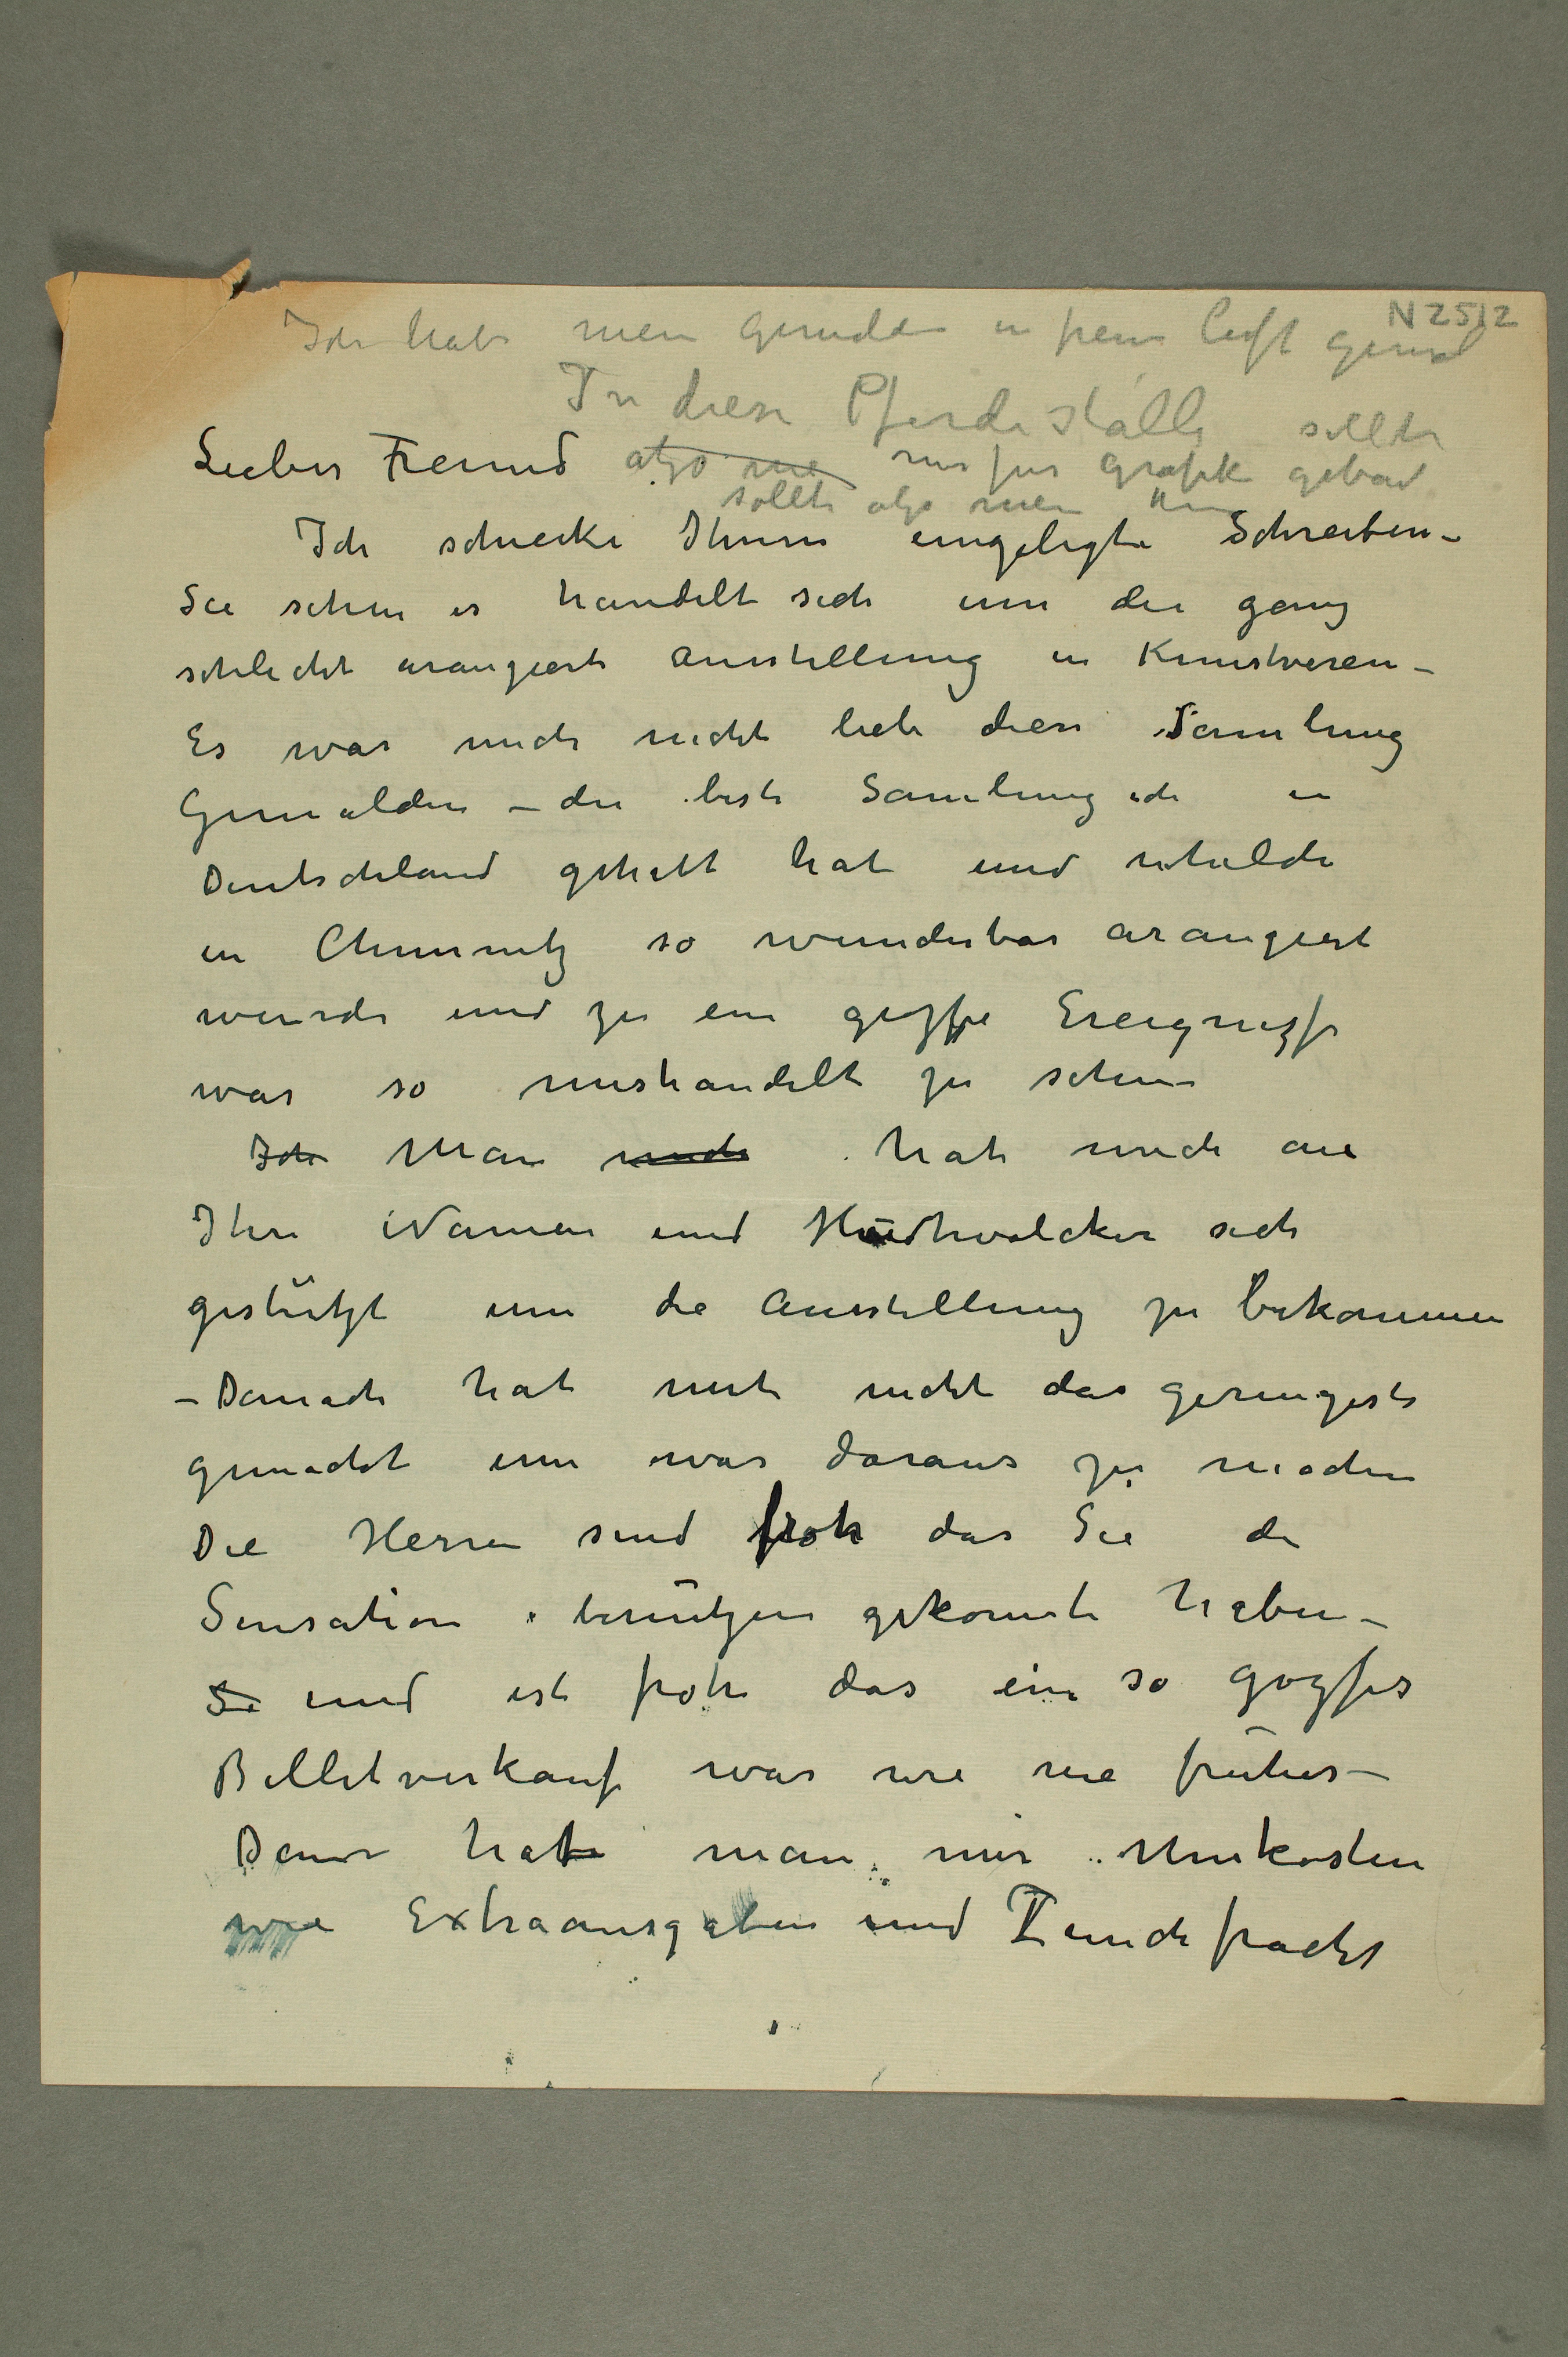 N 2512
Ich habe mein Gemälde in freie Luft gemal
In diese Pferdeställe sollte
Lieber Freund also nie nur für Grafik gebaut
sollte also mein
Ich schicke Ihnen eingelegte Schreiben –
Sie sehen es handelt sich um die ganz
schlecht arangierte Ausstellung in Kunstverein –
Es war mich nicht liebe diese Samlung
Gemälden – die beste Samlung ich in
Deutschland gehabt hat und whelche
in Chemnitz so wunderbar arangiert
wurde und zu ein grosse Ereignisse
war so mishandelt zu sehen
Ich Man mich hat mich an
Ihre Namen und Hudtwalcker sich
gestützt um die Ausstellung zu bekommen
– Danach hat mit nicht das geringeste
gemacht um was daraus zu machen
Die Herren sind froh das Sie die
Sensation benützen gekonnte haben –
Si und ist froh das ein so grosses
Billetverkauf war wie nie früher –
Dann hat man mir Unkosten
wie Extraausgaben und Rückfracht